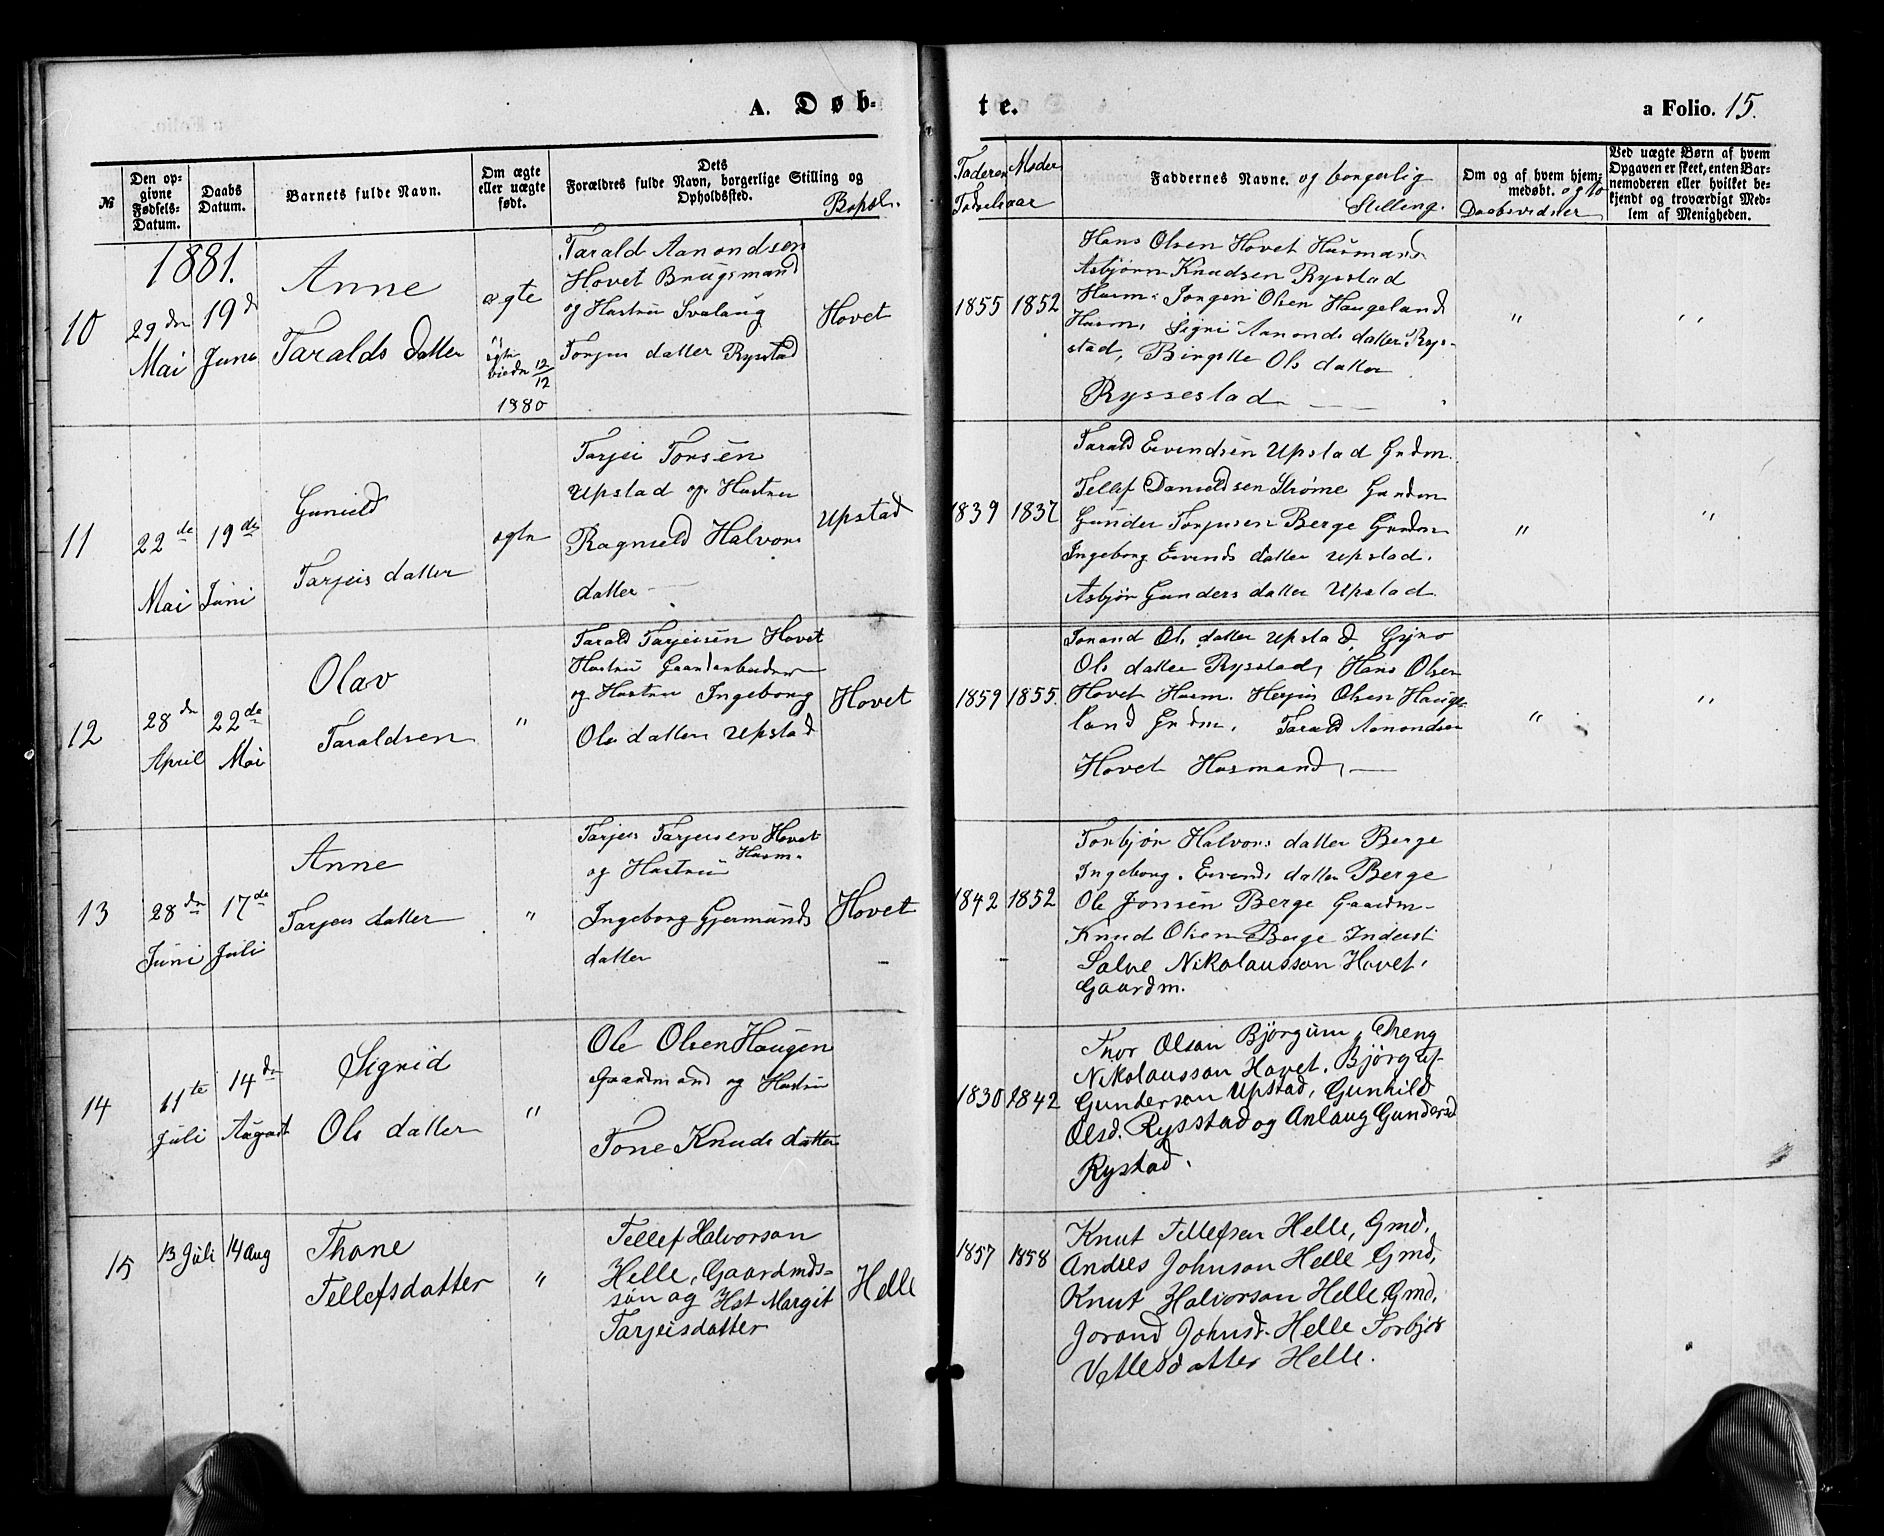 A. Døb-
te.
a Folio. 15.
№
Den op-
givne
Fødsels-
Datum.
Daabs
Datum.
Barnets fulde Navn.
Om ægte
eller uægte
født.
Dets
Forældres fulde Navn, borgerlige Stilling og
Opholdssted.
Bopæl.
Faderen Moder
Fødselsaar
Faddernes Navne. og borgerlig
Stilling.
Om og af hvem hjem-
medøbt. og to
Daabsvidner
Ved uægte Børn af hvem
Opgaven er skeet, enten Bar-
nemoderen eller hvilket be-
kjendt og troværdigt Med-
lem af Menigheden.
1881.
10
29de
Mai
19d
Juni
Anne
Taralds datter
ægte
ægte
viede 12/12
1880
Tarald Aanondsen
Hovet Brugsmand
og Hustru Svalaug
Torjus datter Rysstad
Hovet
1855 1852
Hans Olsen Hovet Husmand
Asbjørn Knudsen Rysstad
Husm: Jorgen Olsen Haugeland
Husm, Sigri Aanonds datter Rys-
stad, Birgitte Ols datter
Rysestad
"
"
11
22de
Mai
19de
Juni
Gunild
Tarjeis datter
ægte
Tarjei Torsen
Upstad og Hustru
Ragnild Halvors
datter
Upstad
1839 1837
Tarald Eivindsen Upstad Grdm.
Tellef Danieldsen Strøme Gardm
Gunder Torjusen Berge Grdm
Ingeborg Eivinds datter Upstad.
Asbjør Gunders datter Upstad.
"
"
12
28de
April
22de
Mai
Olav
Taraldsen
"
Tarald Tarjeisen Hovet
Hustru Gaardarbeider
og Hustru Ingeborg
Ols datter Upstad
Hovet
1859 1855.
Jorand Ols datter Upstad, Gyro
Ols datter Rysstad, Hans Olsen
Hovet Husm. Herjus Olsen Hauge-
land Grdm, Tarald Aanondsen
Hovet Husmand,
"
"
13
28de
Juni
17de
Juli
Anne
Tarjeis datter
"
Tarjeis Tarjeisen Hovet
og Hustru Husm.
Ingeborg Gjermunds
datter
Hovet
1842 1852
Torbjør Halvors datter Berge
Ingeborg. Eivinds datter Berge
Ole Jonsen Berge Gaardm
Knud Olsen Berge Inderst
Salve Nikolausson Hovet,
Gaardm.
14
11te
Juli
14de
August
Sigrid
Ols datter
"
Ole Olsen Haugen
Gaardmand og Hustru
Tone Knuds datter
1830 1842
Thor Olson Bjørgum, Dreng
Nikolausson Hovet, Bjørguf
Gunderson Upstad, Gunhild
Olsd. Rysstad og Anlaug Gundersd
Rystad.
15
13 Juli
14 Aug
Thone
Tellefsdatter
"
Tellef Halvorson
Helle, Gaardmds-
søn og Hst Margit
Tarjeisdatter
Helle
1857 1858
Knut Tellefsen Helle, Gmd,
Andres Johnson Helle Gmd,
Knut Halvorson Helle Gmd,
Jorand Johnsd. Helle Torbjør
Vetlesdatter Helle.